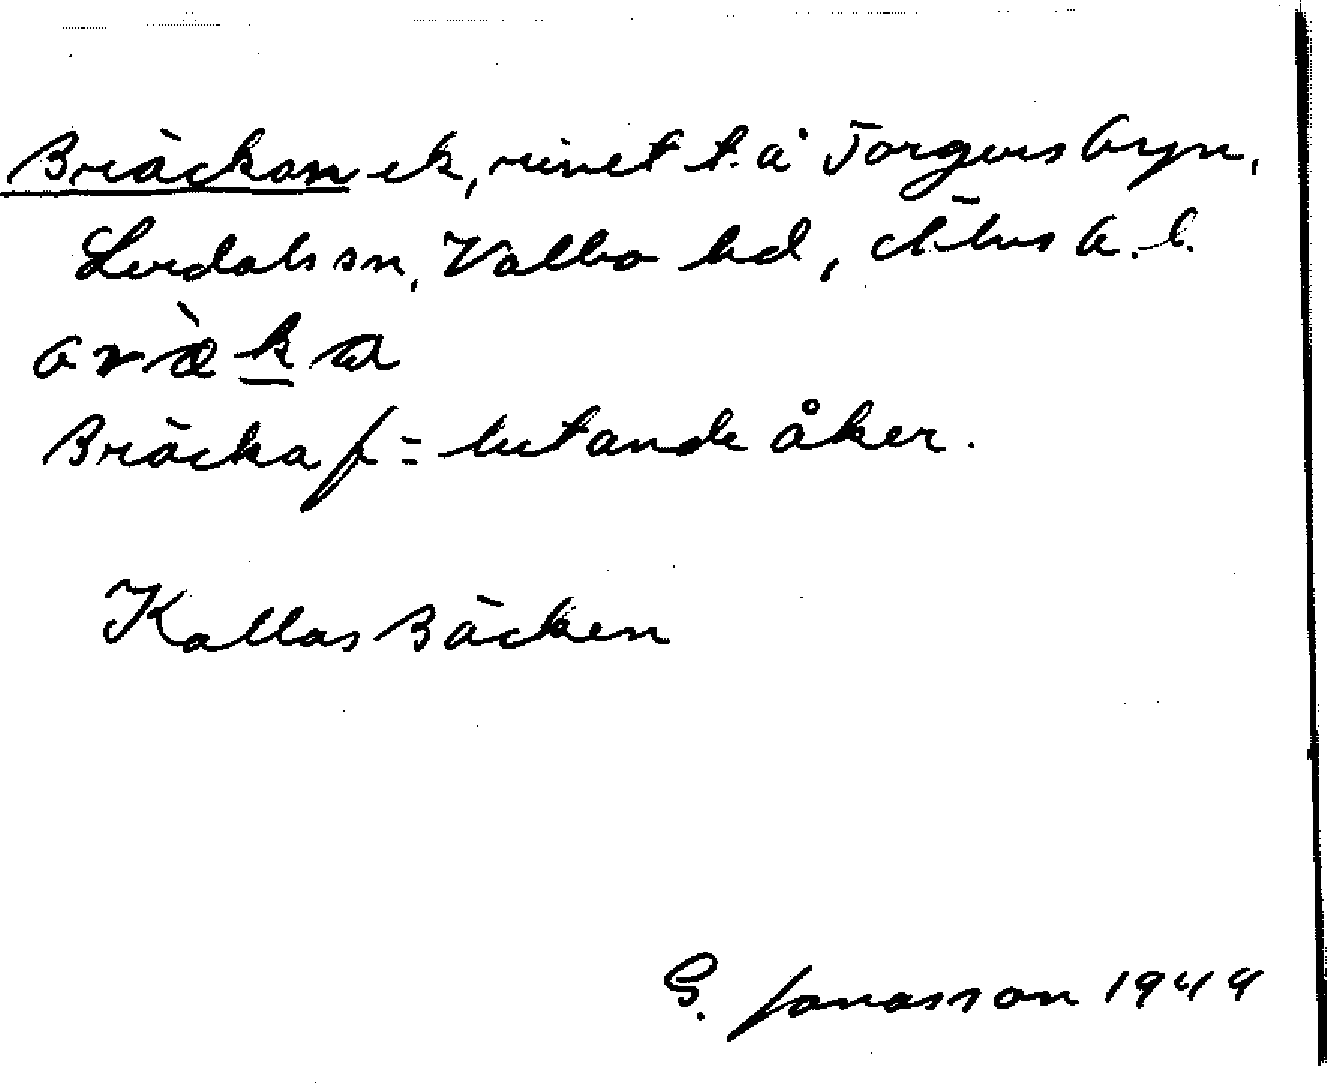 Bräckan ek, rivet t. å Torgersbyn,
Lerdals sn, Valbo hd, Älvsb. l.
bræka
Bräcka f = lutande åker.
Kallas Bäcken
G. Jonasson 1949